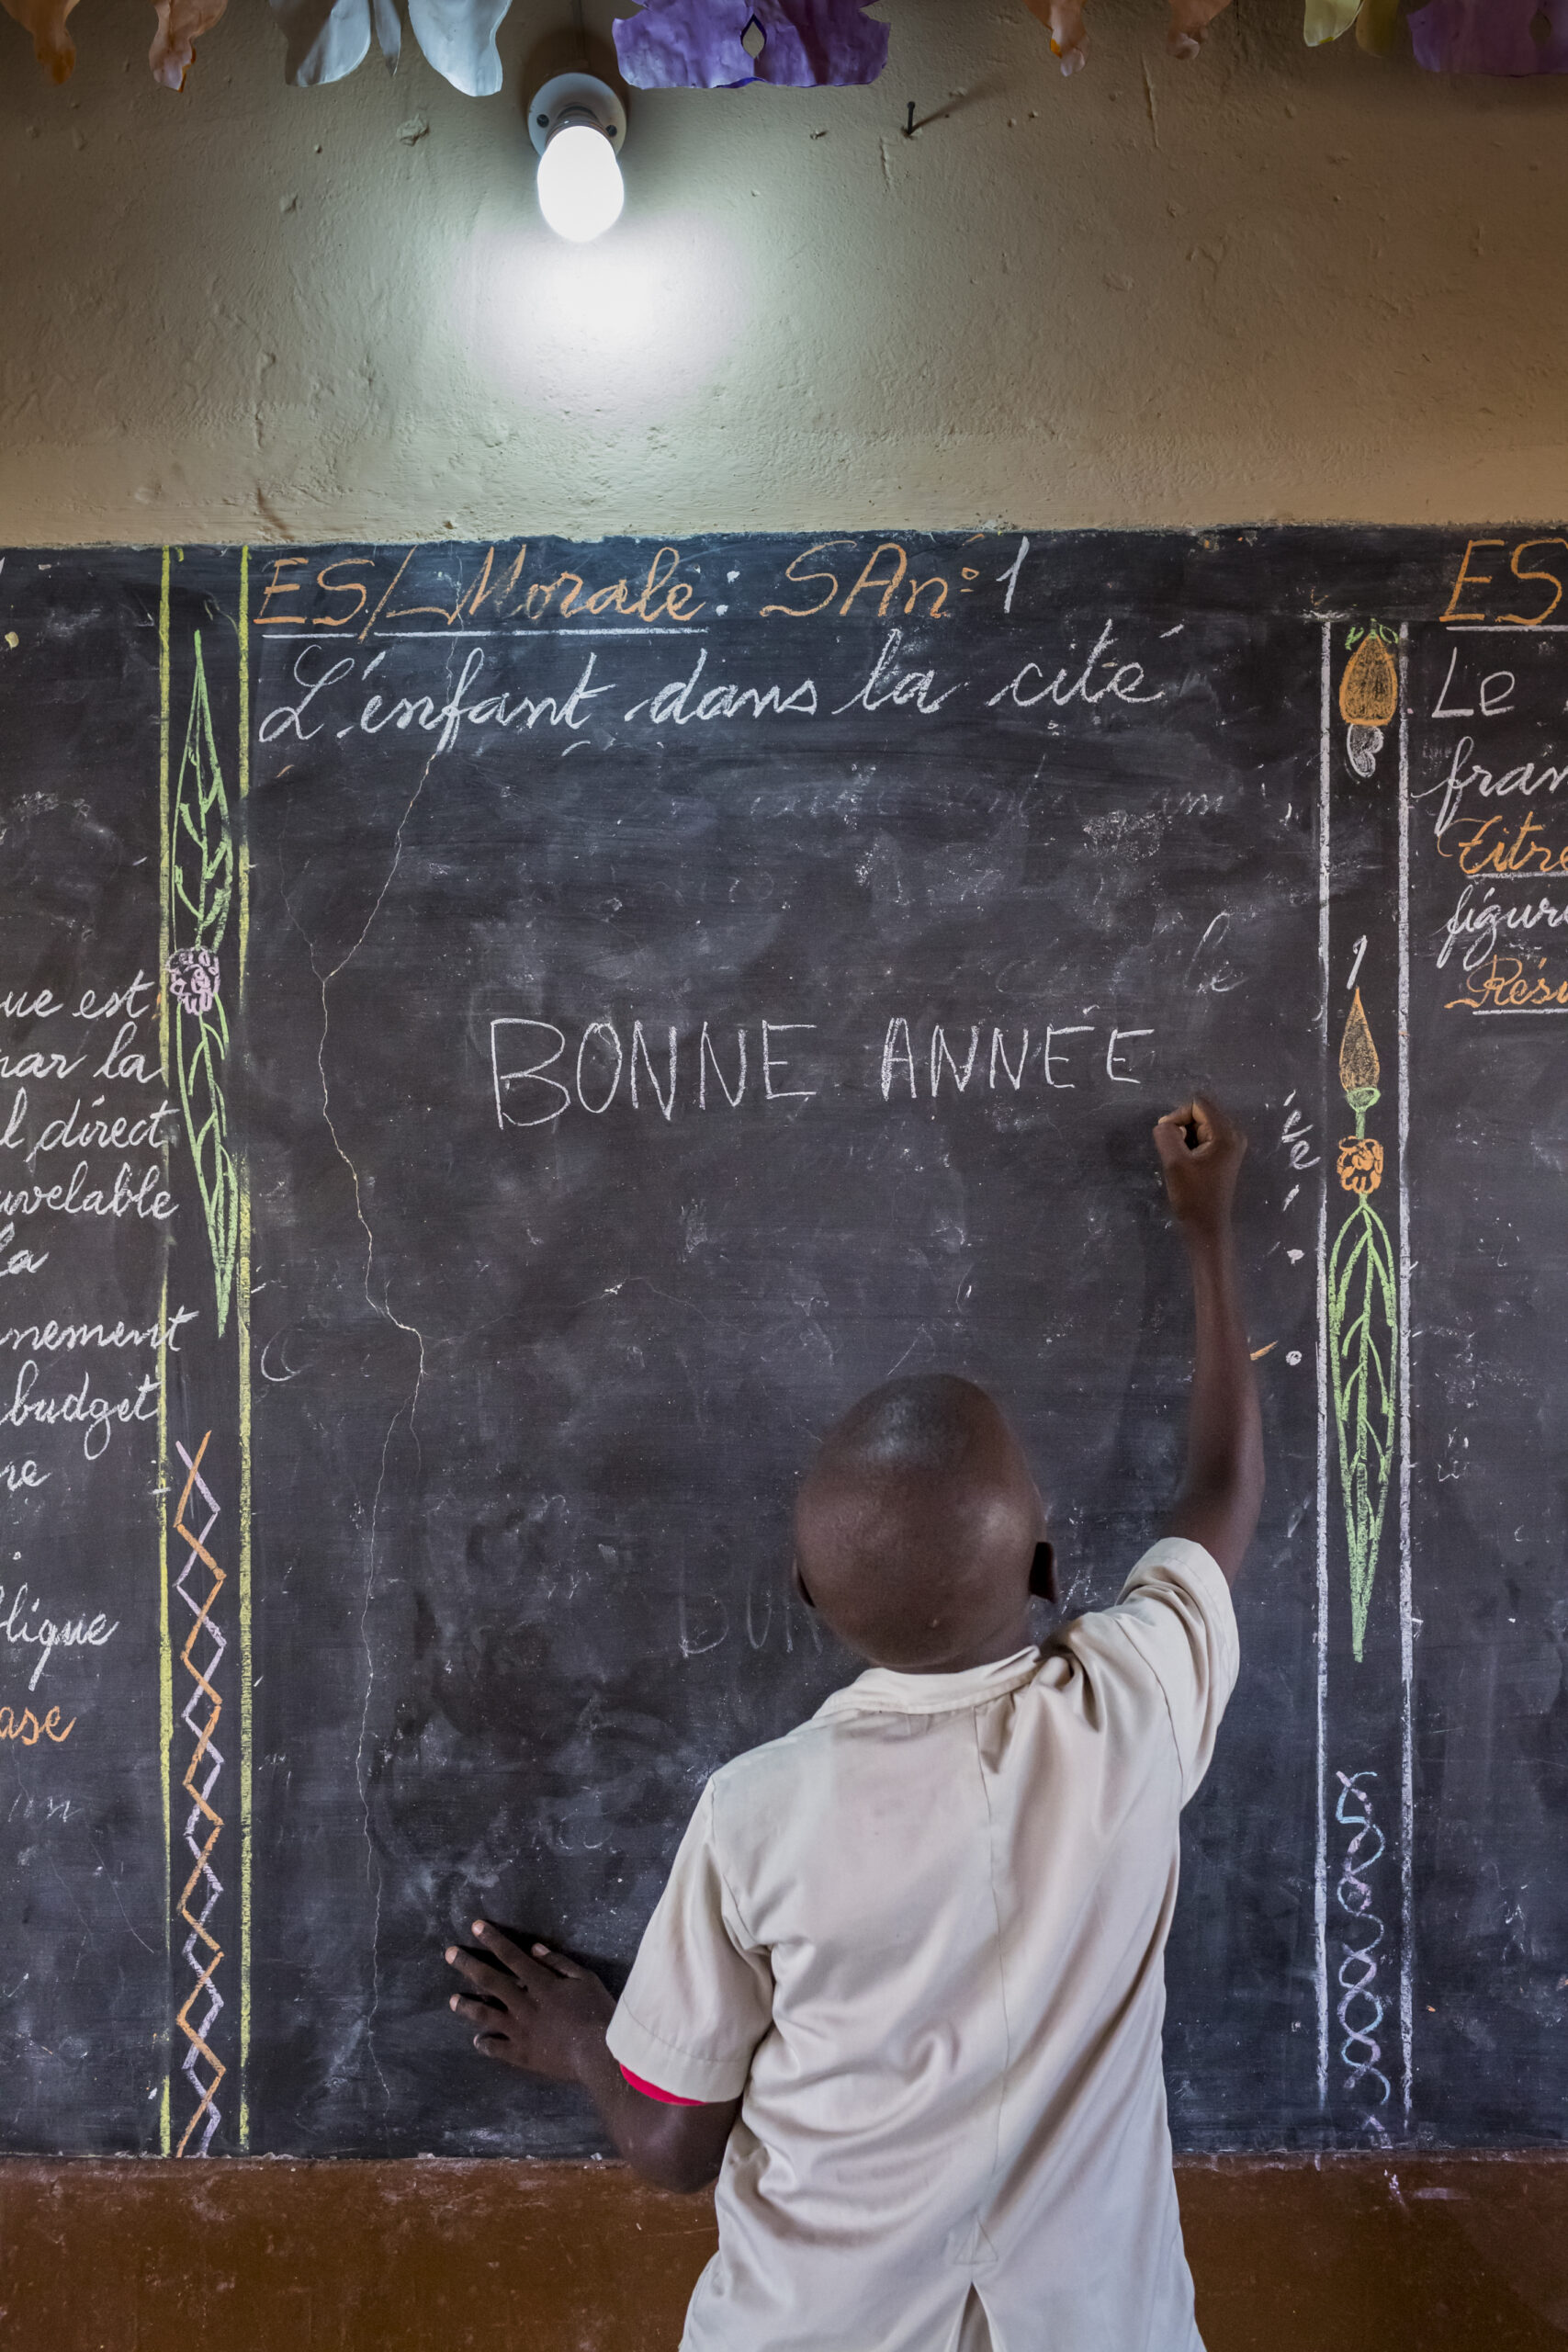 ES/Morale: SAn°1
L'enfant dans la cité
BONNE ANNÉE
ue est
par la
l direct
uvelable
la
nnement
budget
re
blique
ase
ES
Le
fran
Titre
figur
Résu